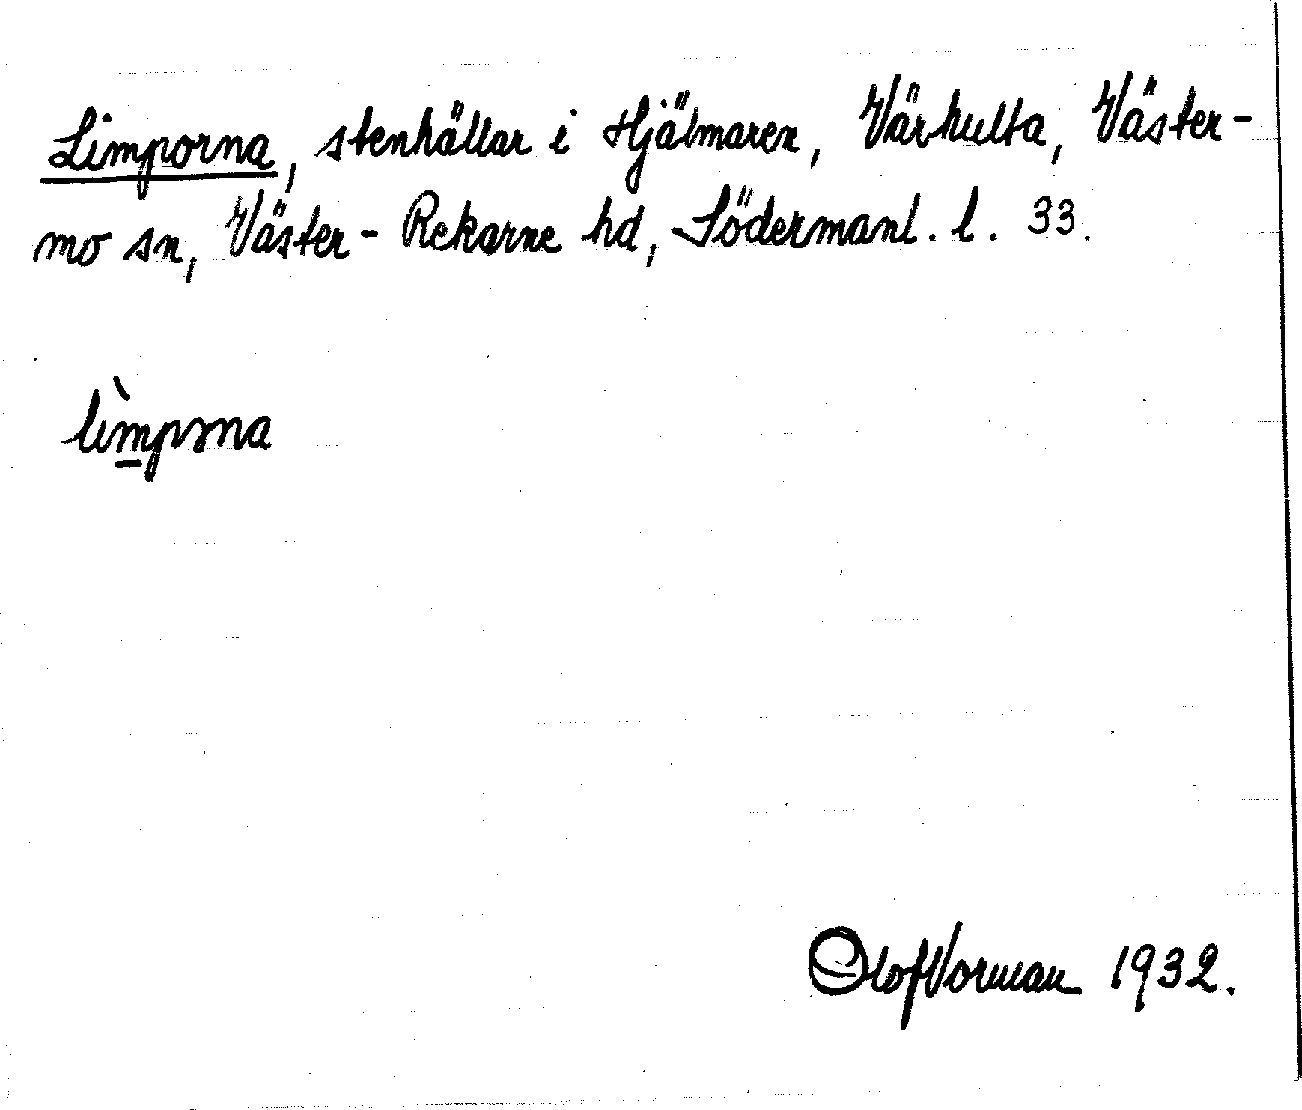 Limporna, stenhällar i Hjälmaren, Värhulta, Väster-
mo sn, Väster-Rekarne hd, Södermanl. l. 33.
Olof Vorman 1932.